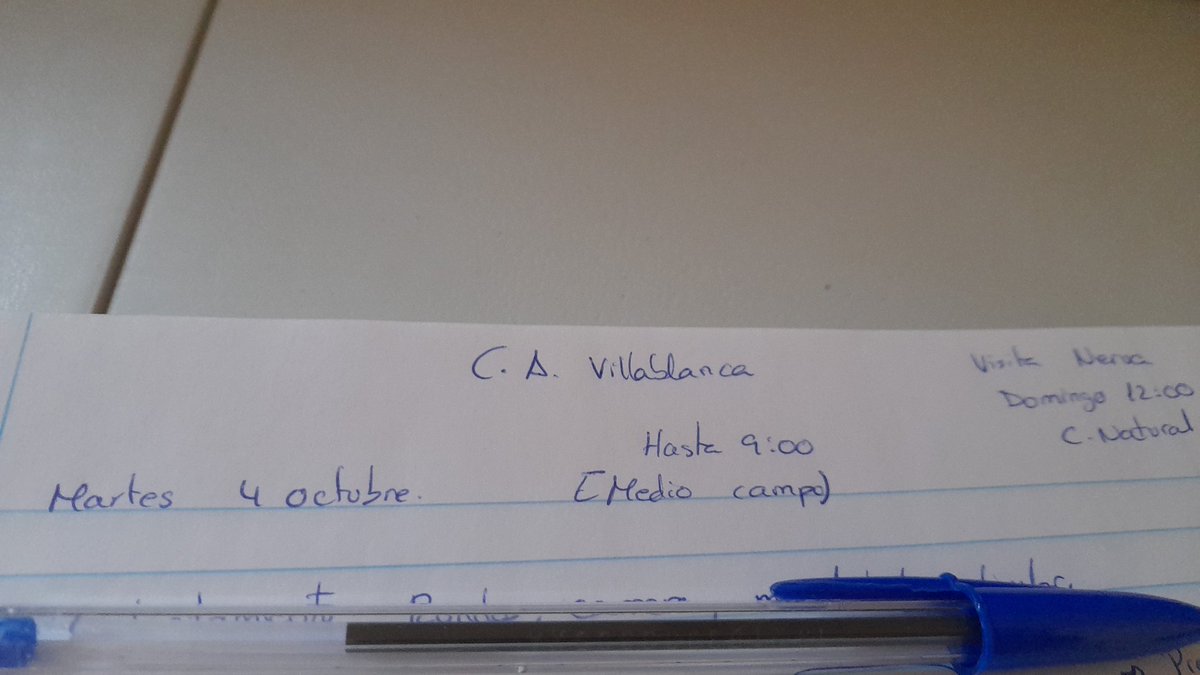 C. A. Villablanca
Visita Nerva
Domingo 12:00
C. Natural
Hasta 9:00
Martes 4 octubre. (Medio campo)